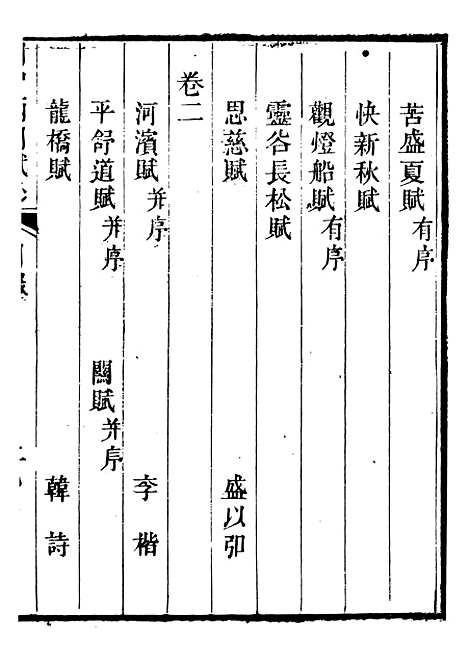 苦盛夏賦有序
快新秋賦
觀燈船賦有序
靈谷長松賦
思慈賦 盛以卯
卷二
河濱賦并序 李楷
平舒道賦并序 關賦并序
龍橋賦 韓詩